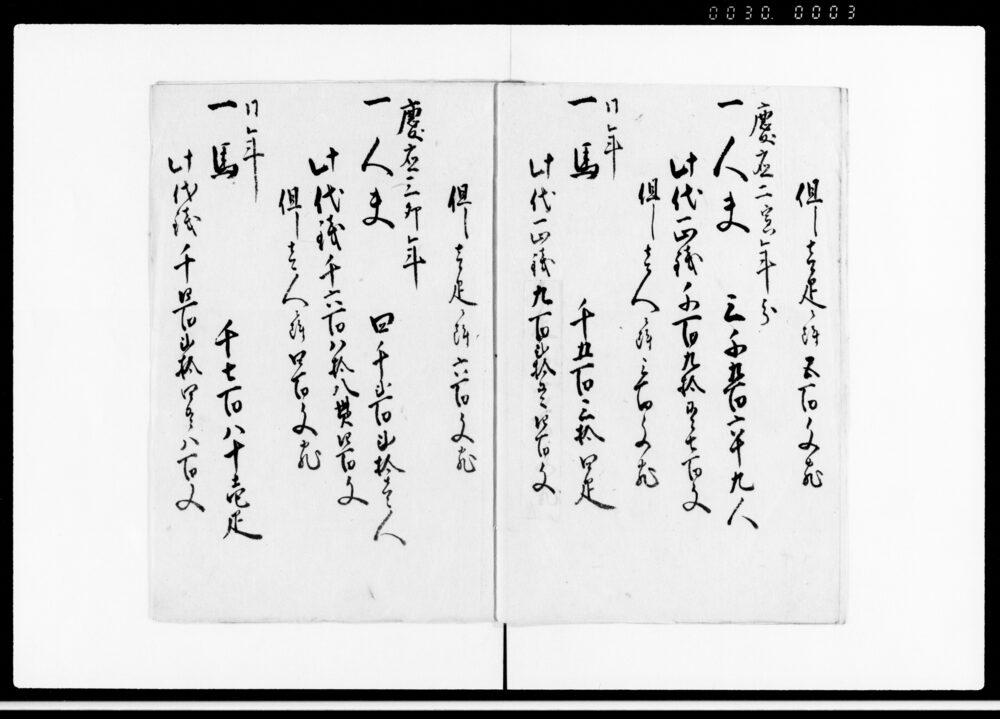 0030. 0003
但し壱疋ニ付五百文宛
慶応二寅年分
一人夫 三千九百六十九人
此代正銭千百九拾貫七百文
但し壱人ニ付三百文宛
同年
一馬 千五百三拾四疋
此代正銭九百弐拾貫四百文
但し壱疋ニ付六百文宛
慶応三卯年
一人夫 四千弐百弐拾壱人
此代銭千六百八拾八貫四百文
但し壱人ニ付四百文宛
同年
一馬 千七百八十壱疋
此代銭千四百弐拾四貫八百文